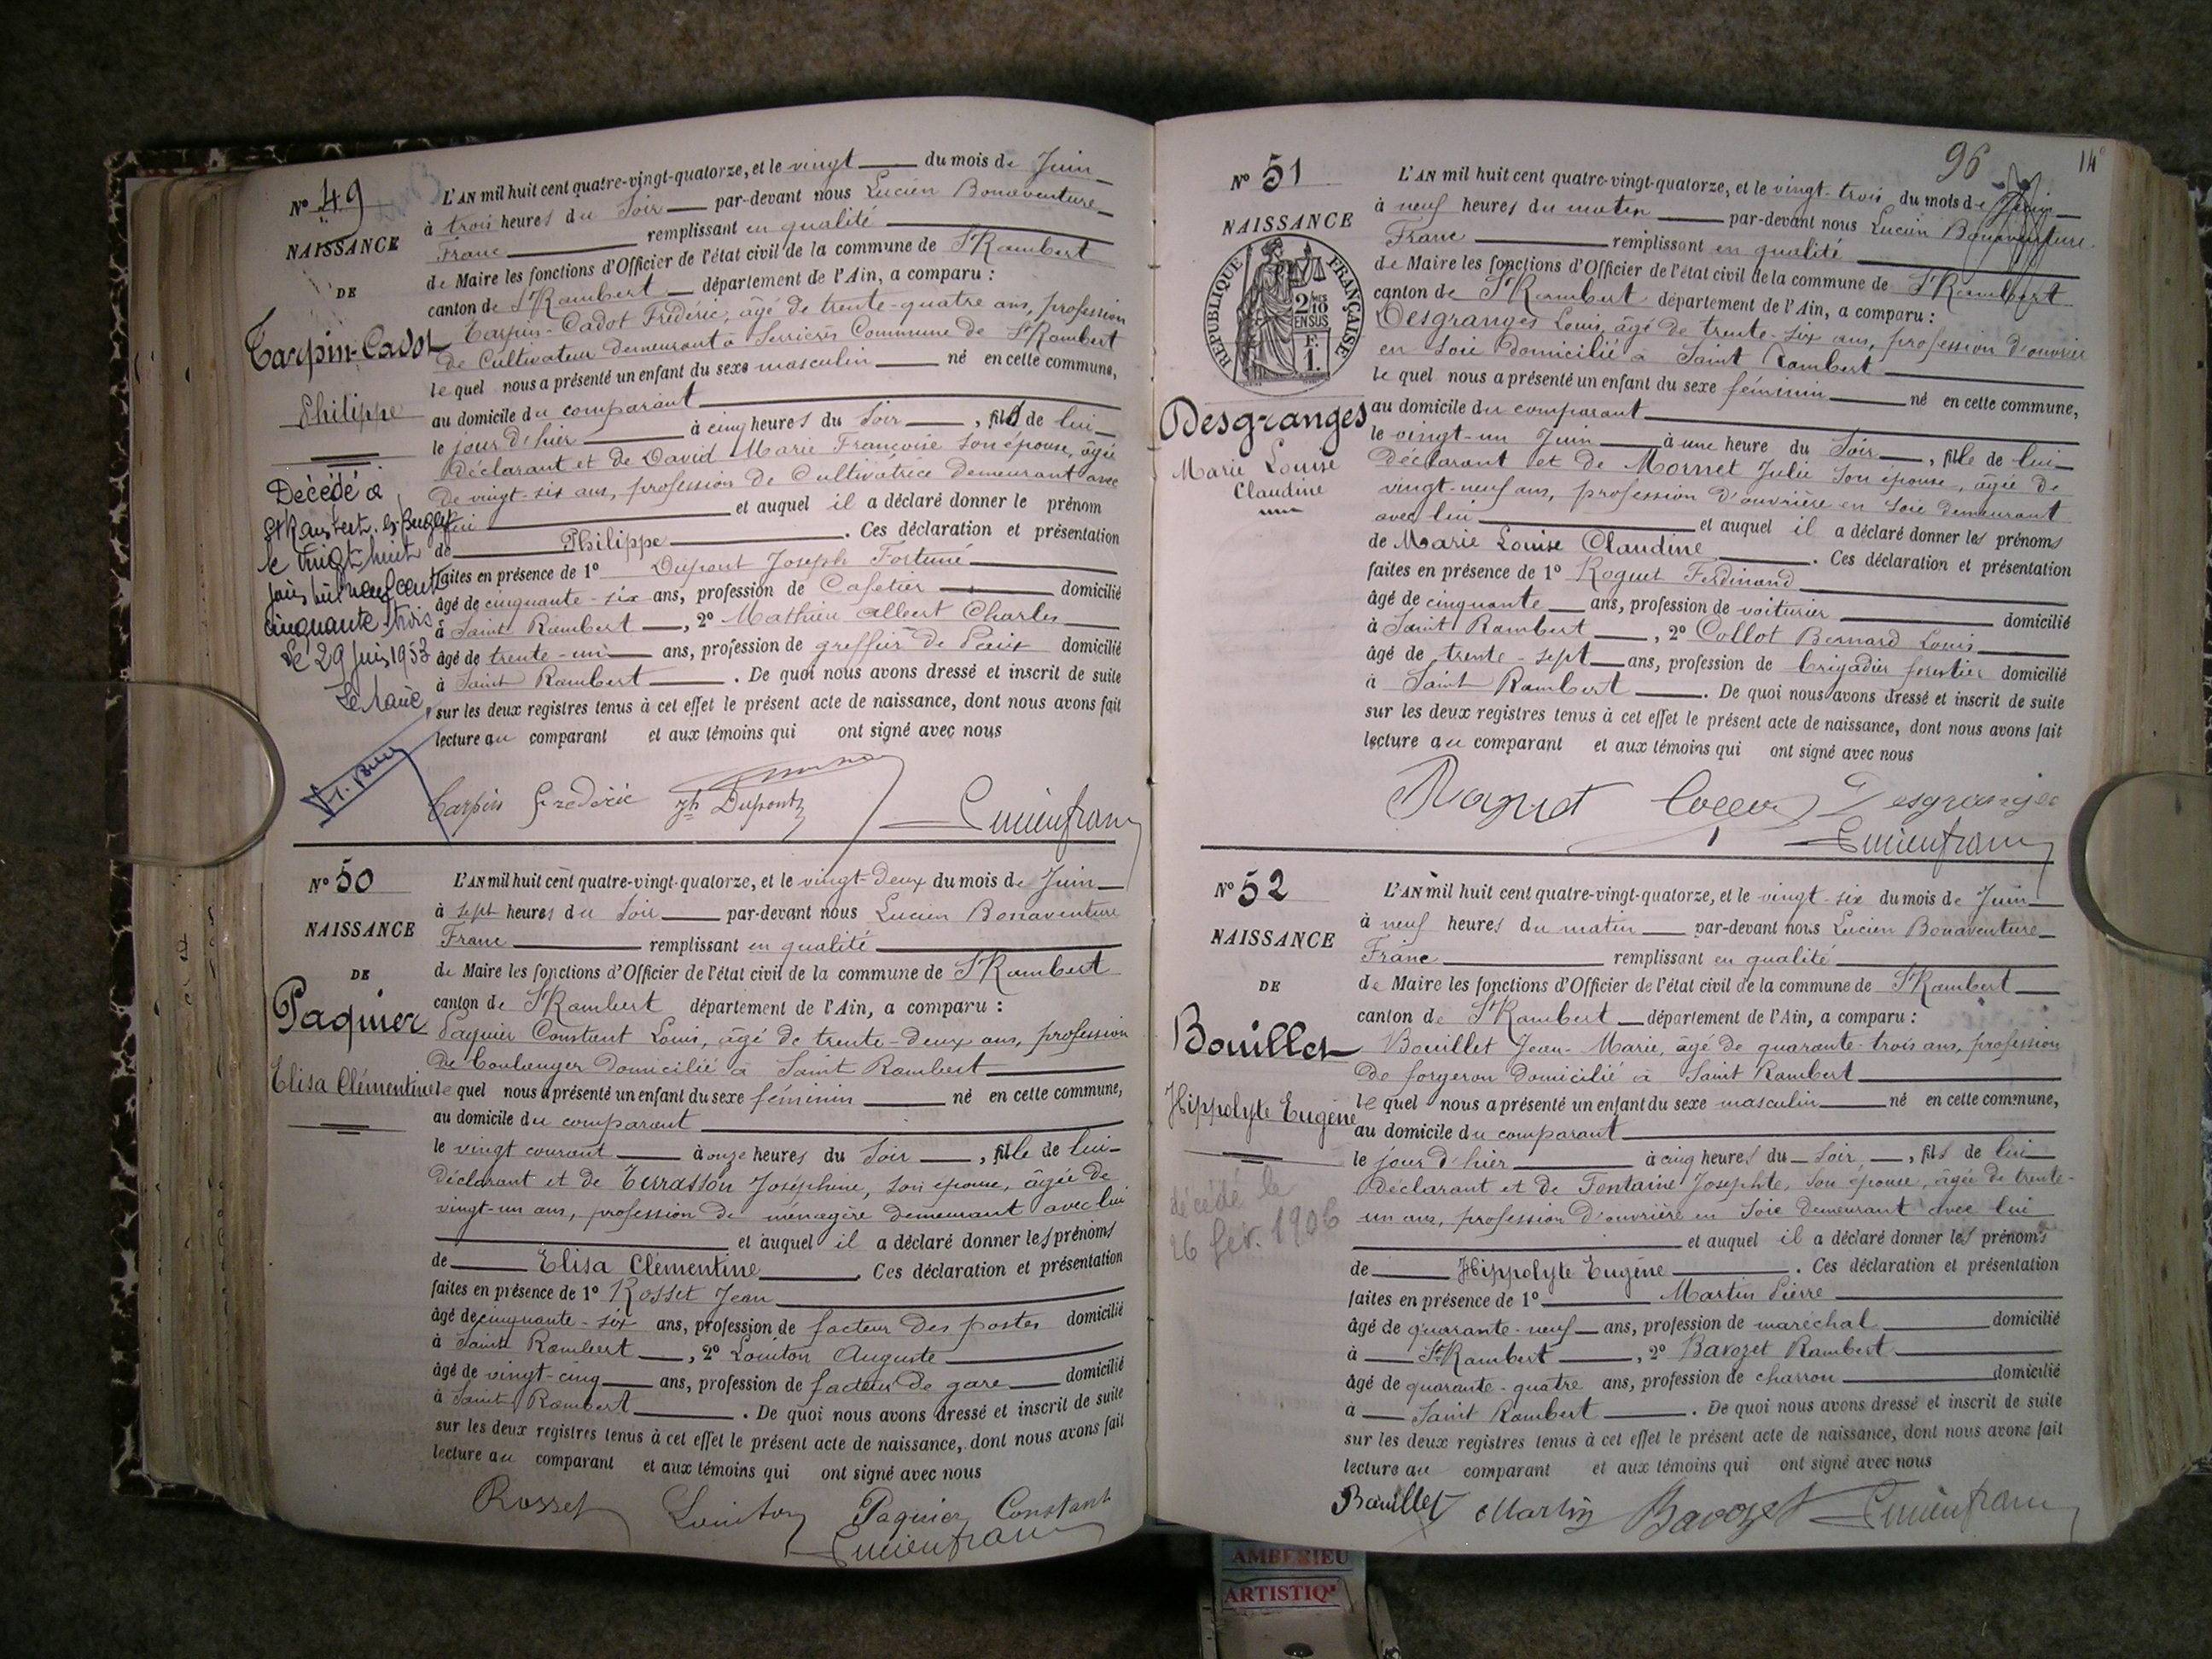 N° 49
NAISSANCE
DE
Tarpin-Cadot
Philippe
Décédé à
St Rambert en Bugey
le vingt huit
juin mil neuf cent
cinquante trois
Le 29 juin 1953
Le Maire,
L'AN mil huit cent quatre-vingt-quatorze, et le vingt du mois de Juin
à trois heures du Soir par-devant nous Lucien Bonaventure
Franc remplissant en qualité
de Maire les fonctions d'Officier de l'état civil de la commune de St Rambert
canton de St Rambert département de l'Ain, a comparu :
Tarpin-Cadot Frédéric, âgé de trente-quatre ans, profession
de Cultivateur demeurant à Serrières Commune de St Rambert
le quel nous a présenté un enfant du sexe masculin né en cette commune,
au domicile du comparant
le jour d'hier à cinq heures du Soir, fils de lui
déclarant et de David Marie Françoise son épouse, âgée
de vingt-six ans, profession de Cultivatrice demeurant avec
lui et auquel il a déclaré donner le prénom
de Philippe. Ces déclaration et présentation
faites en présence de 1° Dupont Joseph Fortuné
âgé de cinquante-six ans, profession de Cafetier domicilié
à Saint Rambert, 2° Mathieu Albert Charles
âgé de trente-un ans, profession de greffier de Paix domicilié
à Saint Rambert. De quoi nous avons dressé et inscrit de suite
sur les deux registres tenus à cet effet le présent acte de naissance, dont nous avons fait
lecture au comparant et aux témoins qui ont signé avec nous
Tarpin Frédéric Jh Dupont Lucien franc
N° 50
NAISSANCE
DE
Paquier
Elisa Clémentine
L'AN mil huit cent quatre-vingt-quatorze, et le vingt-deux du mois de Juin
à sept heures du Soir par-devant nous Lucien Bonaventure
Franc remplissant en qualité
de Maire les fonctions d'Officier de l'état civil de la commune de St Rambert
canton de St Rambert département de l'Ain, a comparu :
Paquier Constant Louis, âgé de trente-deux ans, profession
de boulanger domicilié à Saint Rambert
le quel nous a présenté un enfant du sexe féminin né en cette commune,
au domicile du comparant
le vingt courant à onze heures du Soir, fille de lui
déclarant et de Terrasson Joséphine, son épouse, âgée de
vingt-un ans, profession de ménagère demeurant avec lui
et auquel il a déclaré donner les prénoms
de Elisa Clémentine. Ces déclaration et présentation
faites en présence de 1° Rosset Jean
âgé de cinquante-six ans, profession de facteur des postes domicilié
à Saint Rambert, 2° Louiton Auguste
âgé de vingt-cinq ans, profession de facteur de gare domicilié
à Saint Rambert. De quoi nous avons dressé et inscrit de suite
sur les deux registres tenus à cet effet le présent acte de naissance, dont nous avons fait
lecture au comparant et aux témoins qui ont signé avec nous
Rosset Louiton Paquier Constant
Lucien franc
96
14e
N° 51
NAISSANCE
RÉPUBLIQUE FRANÇAISE
2/10 EN SUS
F. 1.
Desgranges
Marie Louise
Claudine
L'AN mil huit cent quatre-vingt-quatorze, et le vingt-trois du mois de Juin
à neuf heures du matin par-devant nous Lucien Bonaventure
Franc remplissant en qualité
de Maire les fonctions d'Officier de l'état civil de la commune de St Rambert
canton de St Rambert département de l'Ain, a comparu :
Desgranges Louis, âgé de trente-six ans, profession d'ouvrier
en soie domicilié à Saint Rambert
le quel nous a présenté un enfant du sexe féminin né en cette commune,
au domicile du comparant
le vingt-un Juin à une heure du Soir, fille de lui
déclarant et de Mornet Julie son épouse, âgée de
vingt-neuf ans, profession d'ouvrière en Soie demeurant
avec lui et auquel il a déclaré donner les prénoms
de Marie Louise Claudine. Ces déclaration et présentation
faites en présence de 1° Roguet Ferdinand
âgé de cinquante ans, profession de voiturier domicilié
à Saint Rambert, 2° Collot Bernard Louis
âgé de trente-sept ans, profession de brigadier forestier domicilié
à Saint Rambert. De quoi nous avons dressé et inscrit de suite
sur les deux registres tenus à cet effet le présent acte de naissance, dont nous avons fait
lecture au comparant et aux témoins qui ont signé avec nous
Roguet Desgranges
Lucien franc
N° 52
NAISSANCE
DE
Bouillet
Hippolyte Eugène
décédé le
26 fév. 1906
L'AN mil huit cent quatre-vingt-quatorze, et le vingt-six du mois de Juin
à neuf heures du matin par-devant nous Lucien Bonaventure
Franc remplissant en qualité
de Maire les fonctions d'Officier de l'état civil de la commune de St Rambert
canton de St Rambert département de l'Ain, a comparu :
Bouillet Jean-Marie, âgé de quarante-trois ans, profession
de forgeron domicilié à Saint Rambert
le quel nous a présenté un enfant du sexe masculin né en cette commune,
au domicile du comparant
le jour d'hier à cinq heures du Soir, fils de lui
déclarant et de Fontaine Josephte, son épouse, âgée de trente-
un ans, profession d'ouvrière en Soie demeurant avec lui
et auquel il a déclaré donner les prénoms
de Hippolyte Eugène. Ces déclaration et présentation
faites en présence de 1° Martin Pierre
âgé de quarante-neuf ans, profession de maréchal domicilié
à St Rambert, 2° Bavozet Rambert
âgé de quarante-quatre ans, profession de charron domicilié
à Saint Rambert. De quoi nous avons dressé et inscrit de suite
sur les deux registres tenus à cet effet le présent acte de naissance, dont nous avons fait
lecture au comparant et aux témoins qui ont signé avec nous
Bouillet Martin Bavozet Lucien franc
AMBERIEU
ARTISTIQ